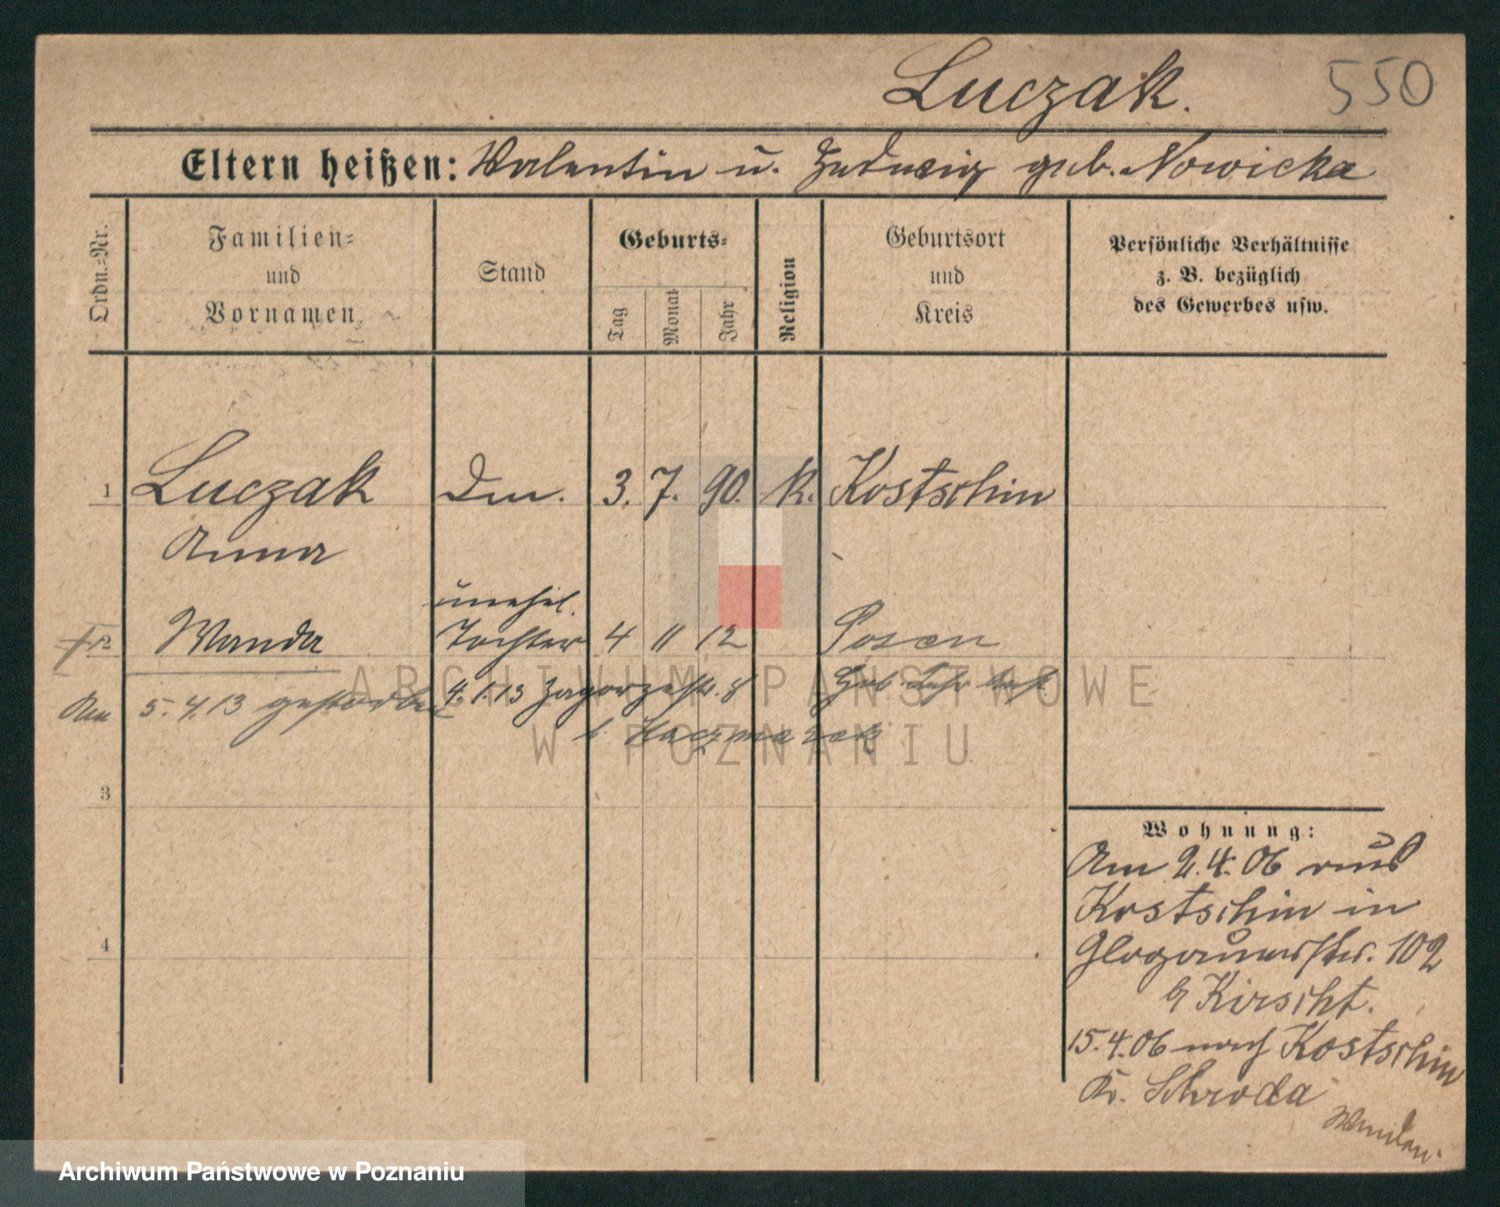 Luczak.
550
Eltern heißen: Valentin u. Hedwig geb. Nowicka
Ordn.-Nr.
Familien-
und
Vornamen
Stand
Geburts-
Tag
Monat
Jahr
Religion
Geburtsort
und
Kreis
Persönliche Verhältnisse
z. B. bezüglich
des Gewerbes usw.
1 Luczak Dm. 3. 7. 90. k. Kostschin
Anna
unehel.
2 Wanda Tochter 4 11 12 Posen
Am 5.4.13 gestorben
4.1.13 Zagorzestr. 8
b. Kaczmarek
3
4
Wohnung:
Am 2.4.06 aus
Kostschin in
Glogauerstr. 102
b Kirscht.
15.4.06 nach Kostschin
Kr. Schroda
ARCHIWUM PAŃSTWOWE
W POZNANIU
Archiwum Państwowe w Poznaniu